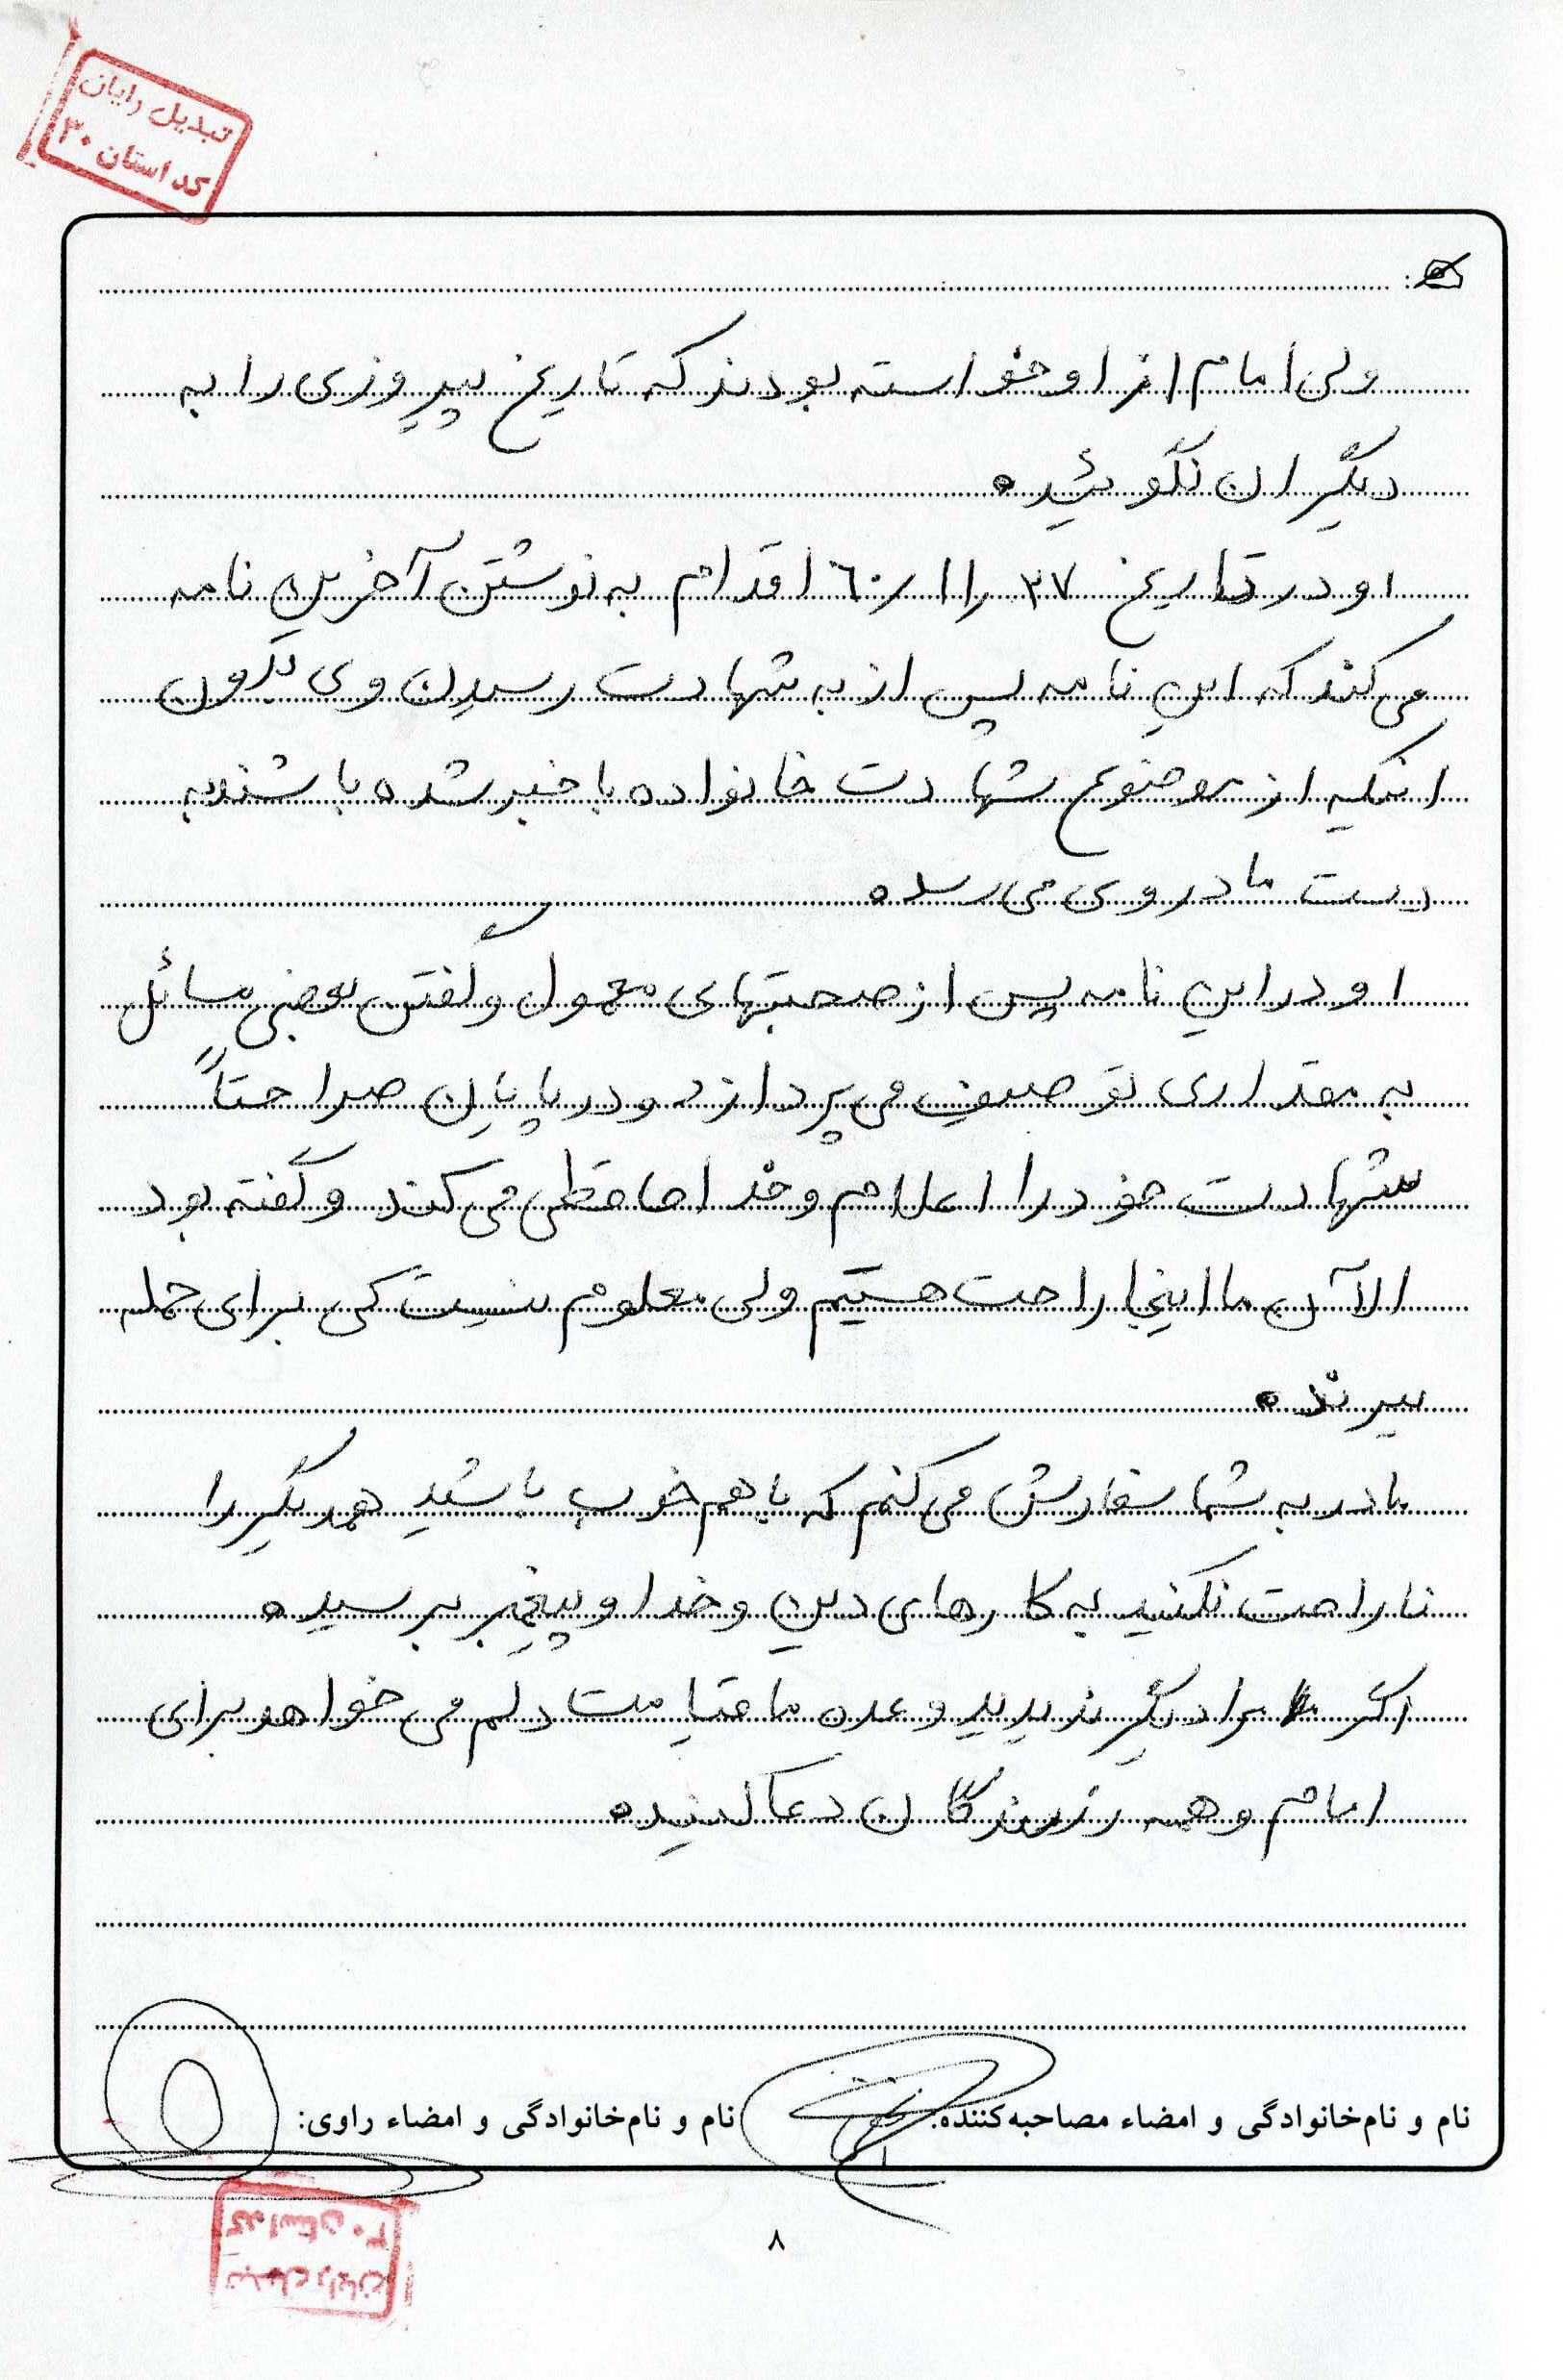 تبدیل رایان
کد استان ۳۰
ولی امام از او خواسته بودند که تاریخ پیروزی را به
دیگران نگوئید.
او در تاریخ ۶۰/۱۱/۲۷ اقدام به نوشتن آخرین نامه
می‌کند که این نامه پس از به شهادت رسیدن وی بدون
اینکه از موضوع شهادت خانواده با خبر شده باشند به
دست مادر وی می‌رسد.
او در این نامه پس از صحبتهای معمول و گفتن بعضی مسائل
به مقداری توصیف می‌پردازد و در پایان صراحتاً
شهادت خود را اعلام و خداحافظی می‌کند و گفته بود
الآن ما اینجا راحت هستیم ولی معلوم نیست کی برای حمله
ببرند.
مادر به شما سفارش می‌کنم که با هم خوب باشید همدیگر را
ناراحت نکنید به کارهای دین و خدا و پیغمبر برسید.
اگر مرا دیگر ندیدید وعده ما قیامت دلم می‌خواهد برای
امام و همه رزمندگان دعا کنید.
نام و نام‌خانوادگی و امضاء مصاحبه‌کننده:
نام و نام‌خانوادگی و امضاء راوی:
کد استان ۳۰
تبدیل رایان
۸